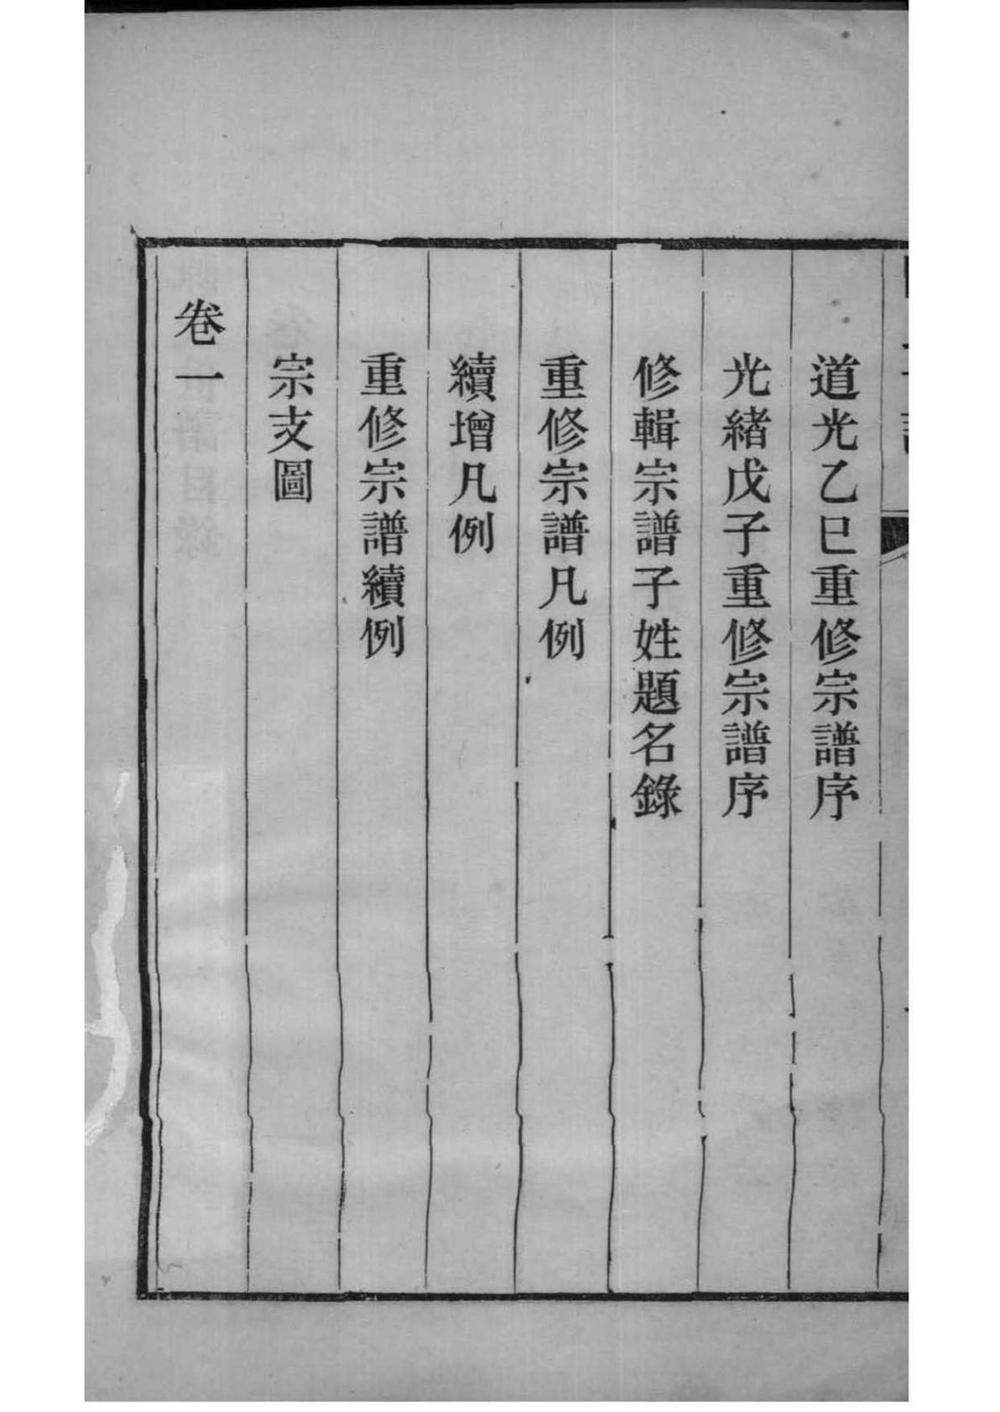 道光乙巳重修宗譜序
光緒戊子重修宗譜序
修輯宗譜子姓題名錄
重修宗譜凡例
續增凡例
重修宗譜續例
宗支圖
卷一